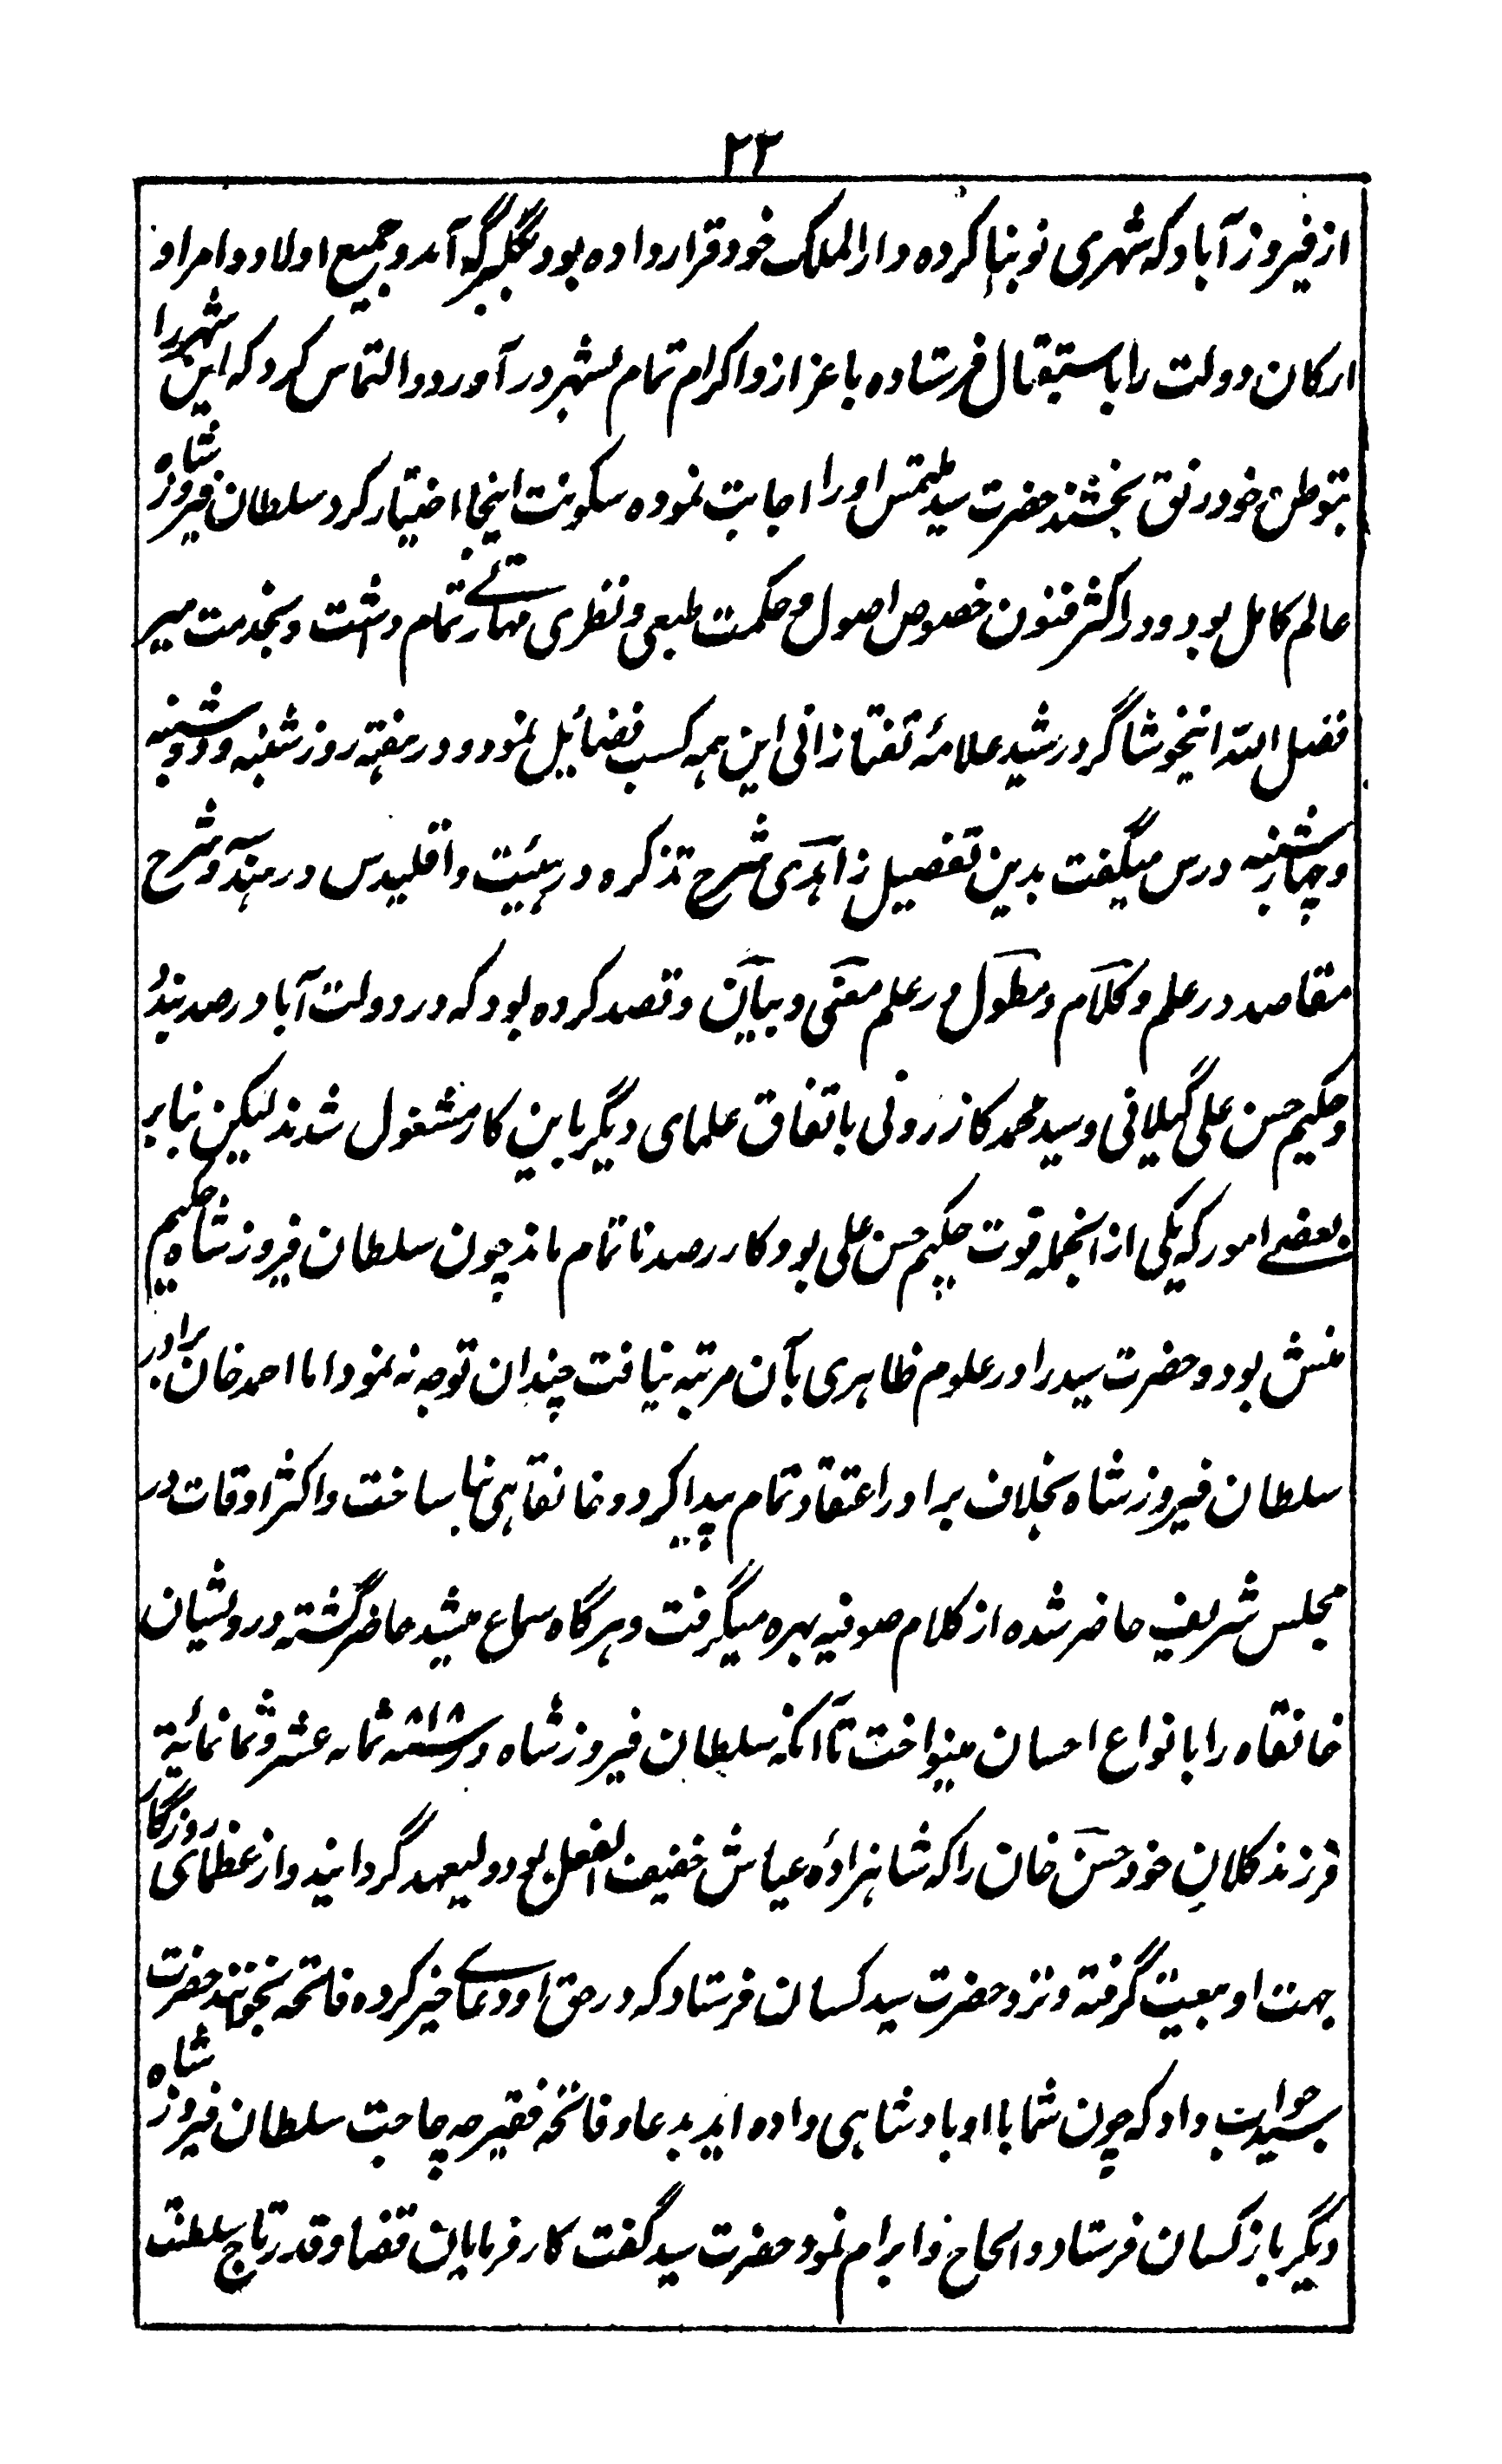 ۲۳
از فیروز آباد که شهری نو بنا کرده دار الملک خود قرار داده بود بگلبرگه آمد و جمیع اولاد و امرا و
ارکان دولت را باستقبال فرستاده باعزاز و اکرام تمام بشهر در آورد و التماس کرد که این شهر را
بتوطن خود رونق بخشند حضرت سید ملتمس او را اجابت نموده سکونت اینجا اختیار کرد سلطان فیروز شاه
عالم کامل بود و در اکثر فنون خصوص اصول و حکمت طبعی و نظری مهارتے تمام داشت و بخدمت میر
فضل الله اینجو شاگرد رشید علامهٔ تفتازانی این همه کسب فضائیل نمود و در هفته روز شنبه و دوشنبه
و چهارشنبه درس میگفت بدین تفصیل زاهدی شرح تذکره در هیئت و اقلیدس در هندسه و شرح
مقاصد در علم و کلام و مطول در علم معنی و بیان و قصد کرده بود که در دولت آباد رصد بندد
و حکیم حسن علی گیلانی و سید محمد کازرونی باتفاق علمای دیگر باین کار مشغول شدند لیکن بنا بر
بعضے امور که یکی از انجمله فوت حکیم حسن علی بود کار رصد ناتمام ماند چون سلطان فیروز شاه حکیم
منش بود و حضرت سید را در علوم ظاهری بآن مرتبه نیافت چندان توجه نه نمود اما احمد خان برادر
سلطان فیروز شاه بخلاف برادر اعتقاد تمام پیدا کرد و خانقاهی بنا ساخت و اکثر اوقات در
مجلس شریف حاضر شده از کلام صوفیه بهره میگرفت و هرگاه سماع میشد حاضر گشته درویشیان
خانقاه را بانواع احسان مینواخت تا آنکه سلطان فیروز شاه در سنه ۸۱۸ ثمانه عشر و ثمانمائة
فرزند کلان خود حسن خان را که شاهزادهٔ عیاش خفیف العقل بود ولیعهد گردانید و از عظمای روزگار
جهت او بیعت گرفته و نزد حضرت سید کسان فرستاد که در حق او دعاے خیر کرده فاتحه بخوانند حضرت
سید جواب داد که چون شما باو بادشاهی داده اید بدعا و فاتحه فقیر چه حاجت سلطان فیروز شاه
دیگر باز کسان فرستاد و الحاح و ابرام نمود حضرت سید گفت کارفرمایان قضا و قدر تاج سلطنت